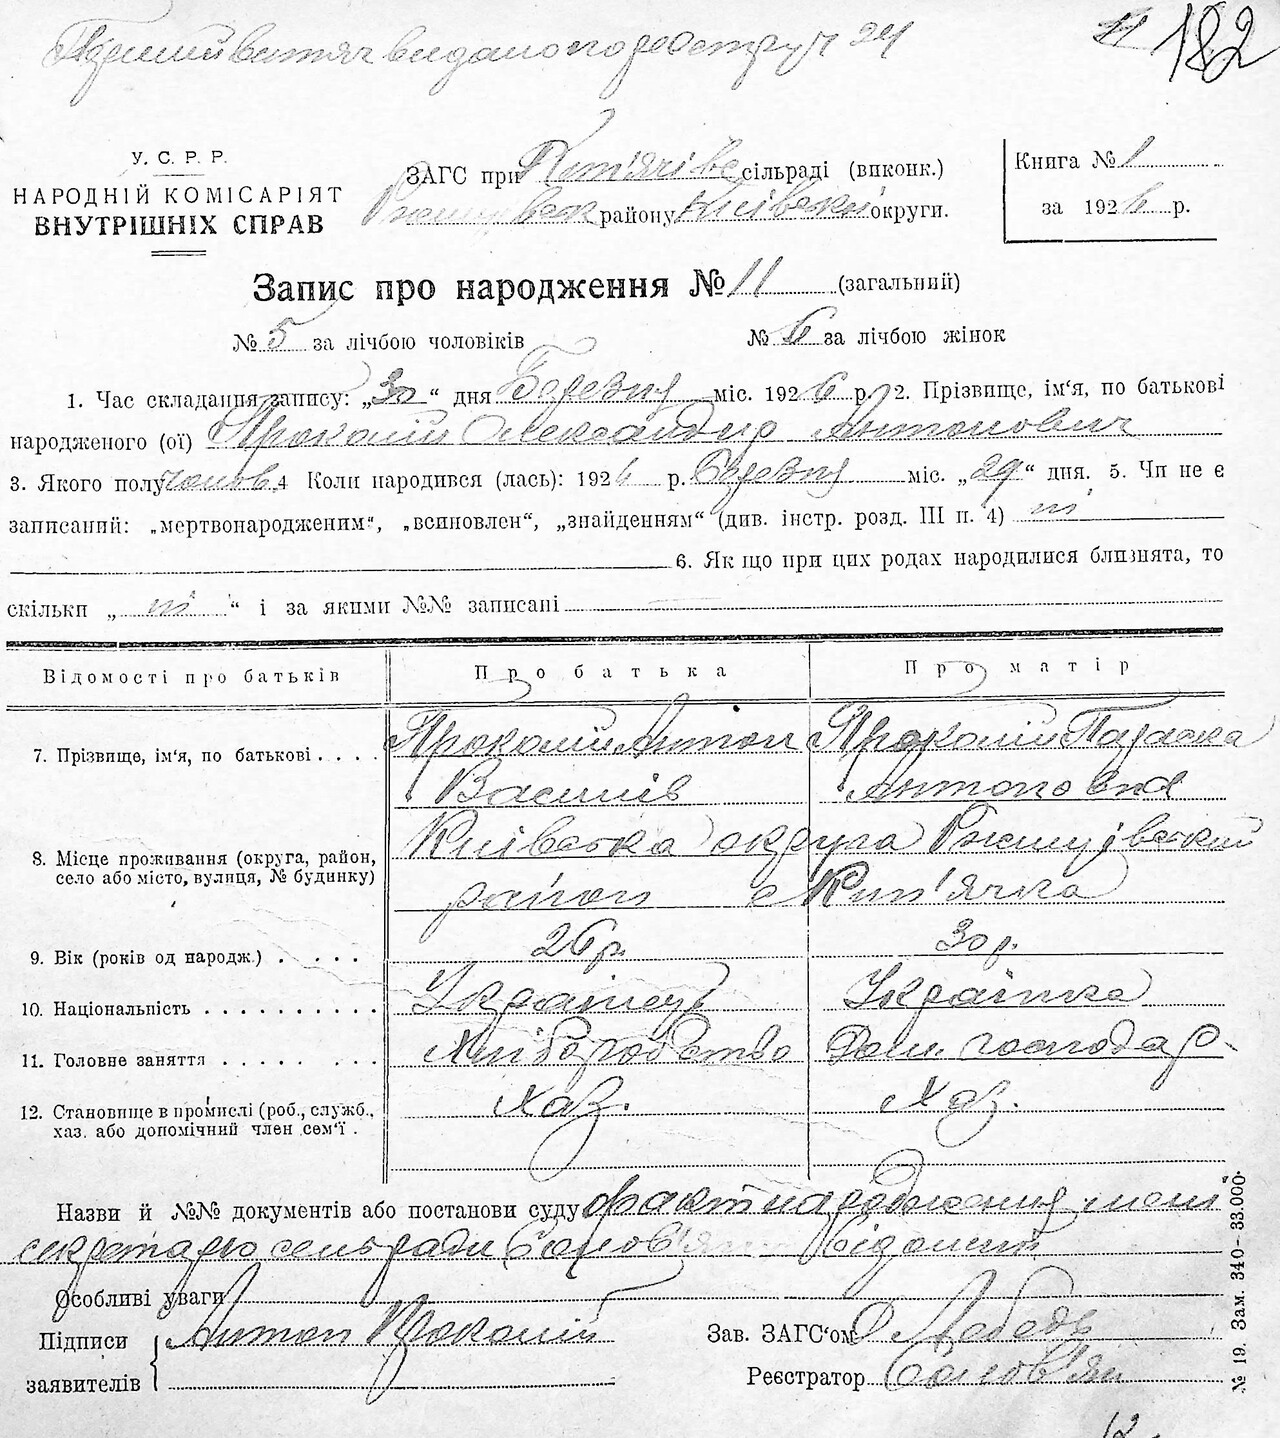 Перший витяг видано по реєстру ч 24
11 182
У. С. Р. Р.
НАРОДНІЙ КОМІСАРІЯТ
ВНУТРІШНІХ СПРАВ
ЗАГС при Кип'ячівс сільраді (виконк.)
Ржищівськ району Київськ округи.
Книга № 1
за 1926 р.
Запис про народження № 11 (загальний)
№ 5 за лічбою чоловіків № 6 за лічбою жінок
1. Час складання запису: „30“ дня Березня міс. 1926 р. 2. Прізвище, ім'я, по батькові
народженого (ої) Прокопій Олександир Антонович
3. Якого полу чолов. 4 Коли народився (лась): 1926 р. Березня міс. „29“ дня. 5. Чи не є
записаний: „мертвонародженим“, „всиновлен“, „знайденням“ (див. інстр. розд. III п. 4) ні
6. Як що при цих родах народилися близнята, то
скільки „ ні “ і за якими №№ записані —
Відомості про батьків Про батька Про матір
7. Прізвище, ім'я, по батькові . . . . Прокопій Антон Прокопій Параска
Василів Антоновна
8. Місце проживання (округа, район, село або місто, вулиця, № будинку) Київська округа Ржищівський
район с Кип'ячка
9. Вік (років од народж.) . . . . 26 р. 30 р.
10. Національність . . . . . . . . . . Українець Українка
11. Головне заняття . . . . . . . . Хліборобство Дом. господар.
12. Становище в промислі (роб., служб., хаз. або допомічний член сем'ї . Хаз. Хаз.
Назви й №№ документів або постанови суду факт народження мені
секретарю сельради Солов'ян відомий
Особливі уваги
Підписи заявителів { Антон Прокопій
Зав. ЗАГС'ом Лебедь
Реєстратор Солов'ян
№ 19. Зам. 340—33.000.
12.